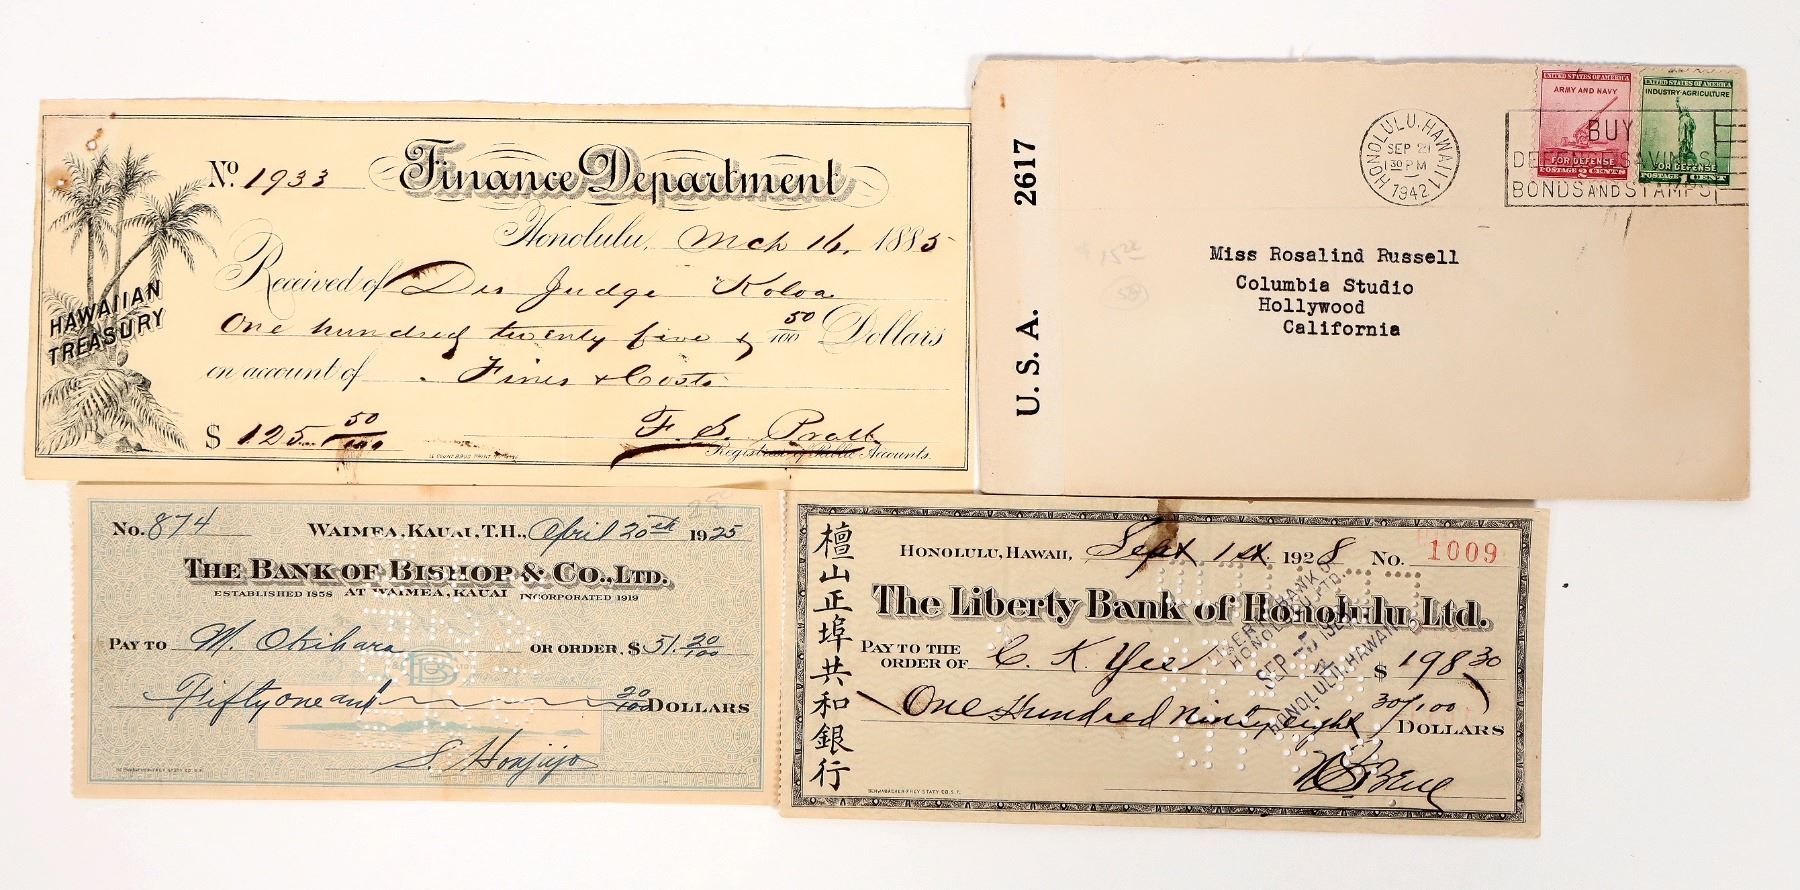 No. 1933 Finance Department
Honolulu, Mch 16, 1885
Received of Dis Judge Koloa
One hundred twenty five & 50/100 Dollars
on account of Fines & Costs
$ 125 50/100 F. S. Pratt
Registrar of Public Accounts.
HAWAIIAN
TREASURY
U. S. A. 2617
HONOLULU, HAWAII
SEP 21
1 30 PM
1942
BUY
DEFENSE SAVINGS
BONDS AND STAMPS
UNITED STATES OF AMERICA
ARMY AND NAVY
FOR DEFENSE
POSTAGE 2 CENTS
UNITED STATES OF AMERICA
INDUSTRY-AGRICULTURE
FOR DEFENSE
POSTAGE 1 CENT
Miss Rosalind Russell
Columbia Studio
Hollywood
California
No. 874 WAIMEA, KAUAI, T.H., April 20th 1925
THE BANK OF BISHOP & CO., LTD.
ESTABLISHED 1858 AT WAIMEA, KAUAI INCORPORATED 1919
PAY TO M. Okihara OR ORDER, $ 51. 20/100
Fifty one and 20/100 DOLLARS
S. Honjiyo
檀山正埠共和銀行
HONOLULU, HAWAII, Sept 1st 1928 No. 1009
The Liberty Bank of Honolulu, Ltd.
PAY TO THE
ORDER OF C. K. Yee $ 198 30
One Hundred Ninty eight 30/100 DOLLARS
LIBERTY BANK OF
HONOLULU, LTD.
SEP -5 192
HONOLULU, HAWAII
SCHWABACHER-FREY STATY CO. S. F.